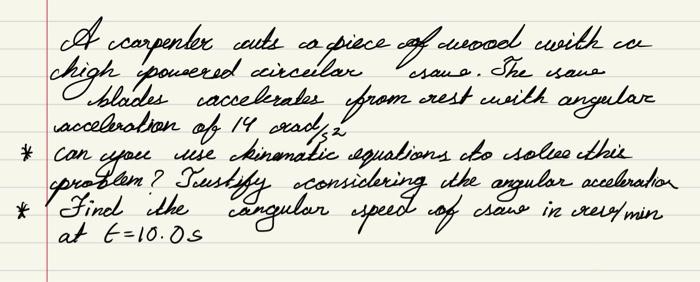 A carpenter cuts a piece of wood with a
high powered circular saw. The saw
blades accelerates from rest with angular
acceleration of 14 rad/s2
* Can you use kinematic equations to solve this
problem? Justify considering the angular acceleration
* Find the angular speed of saw in rev/min
at t=10.0s